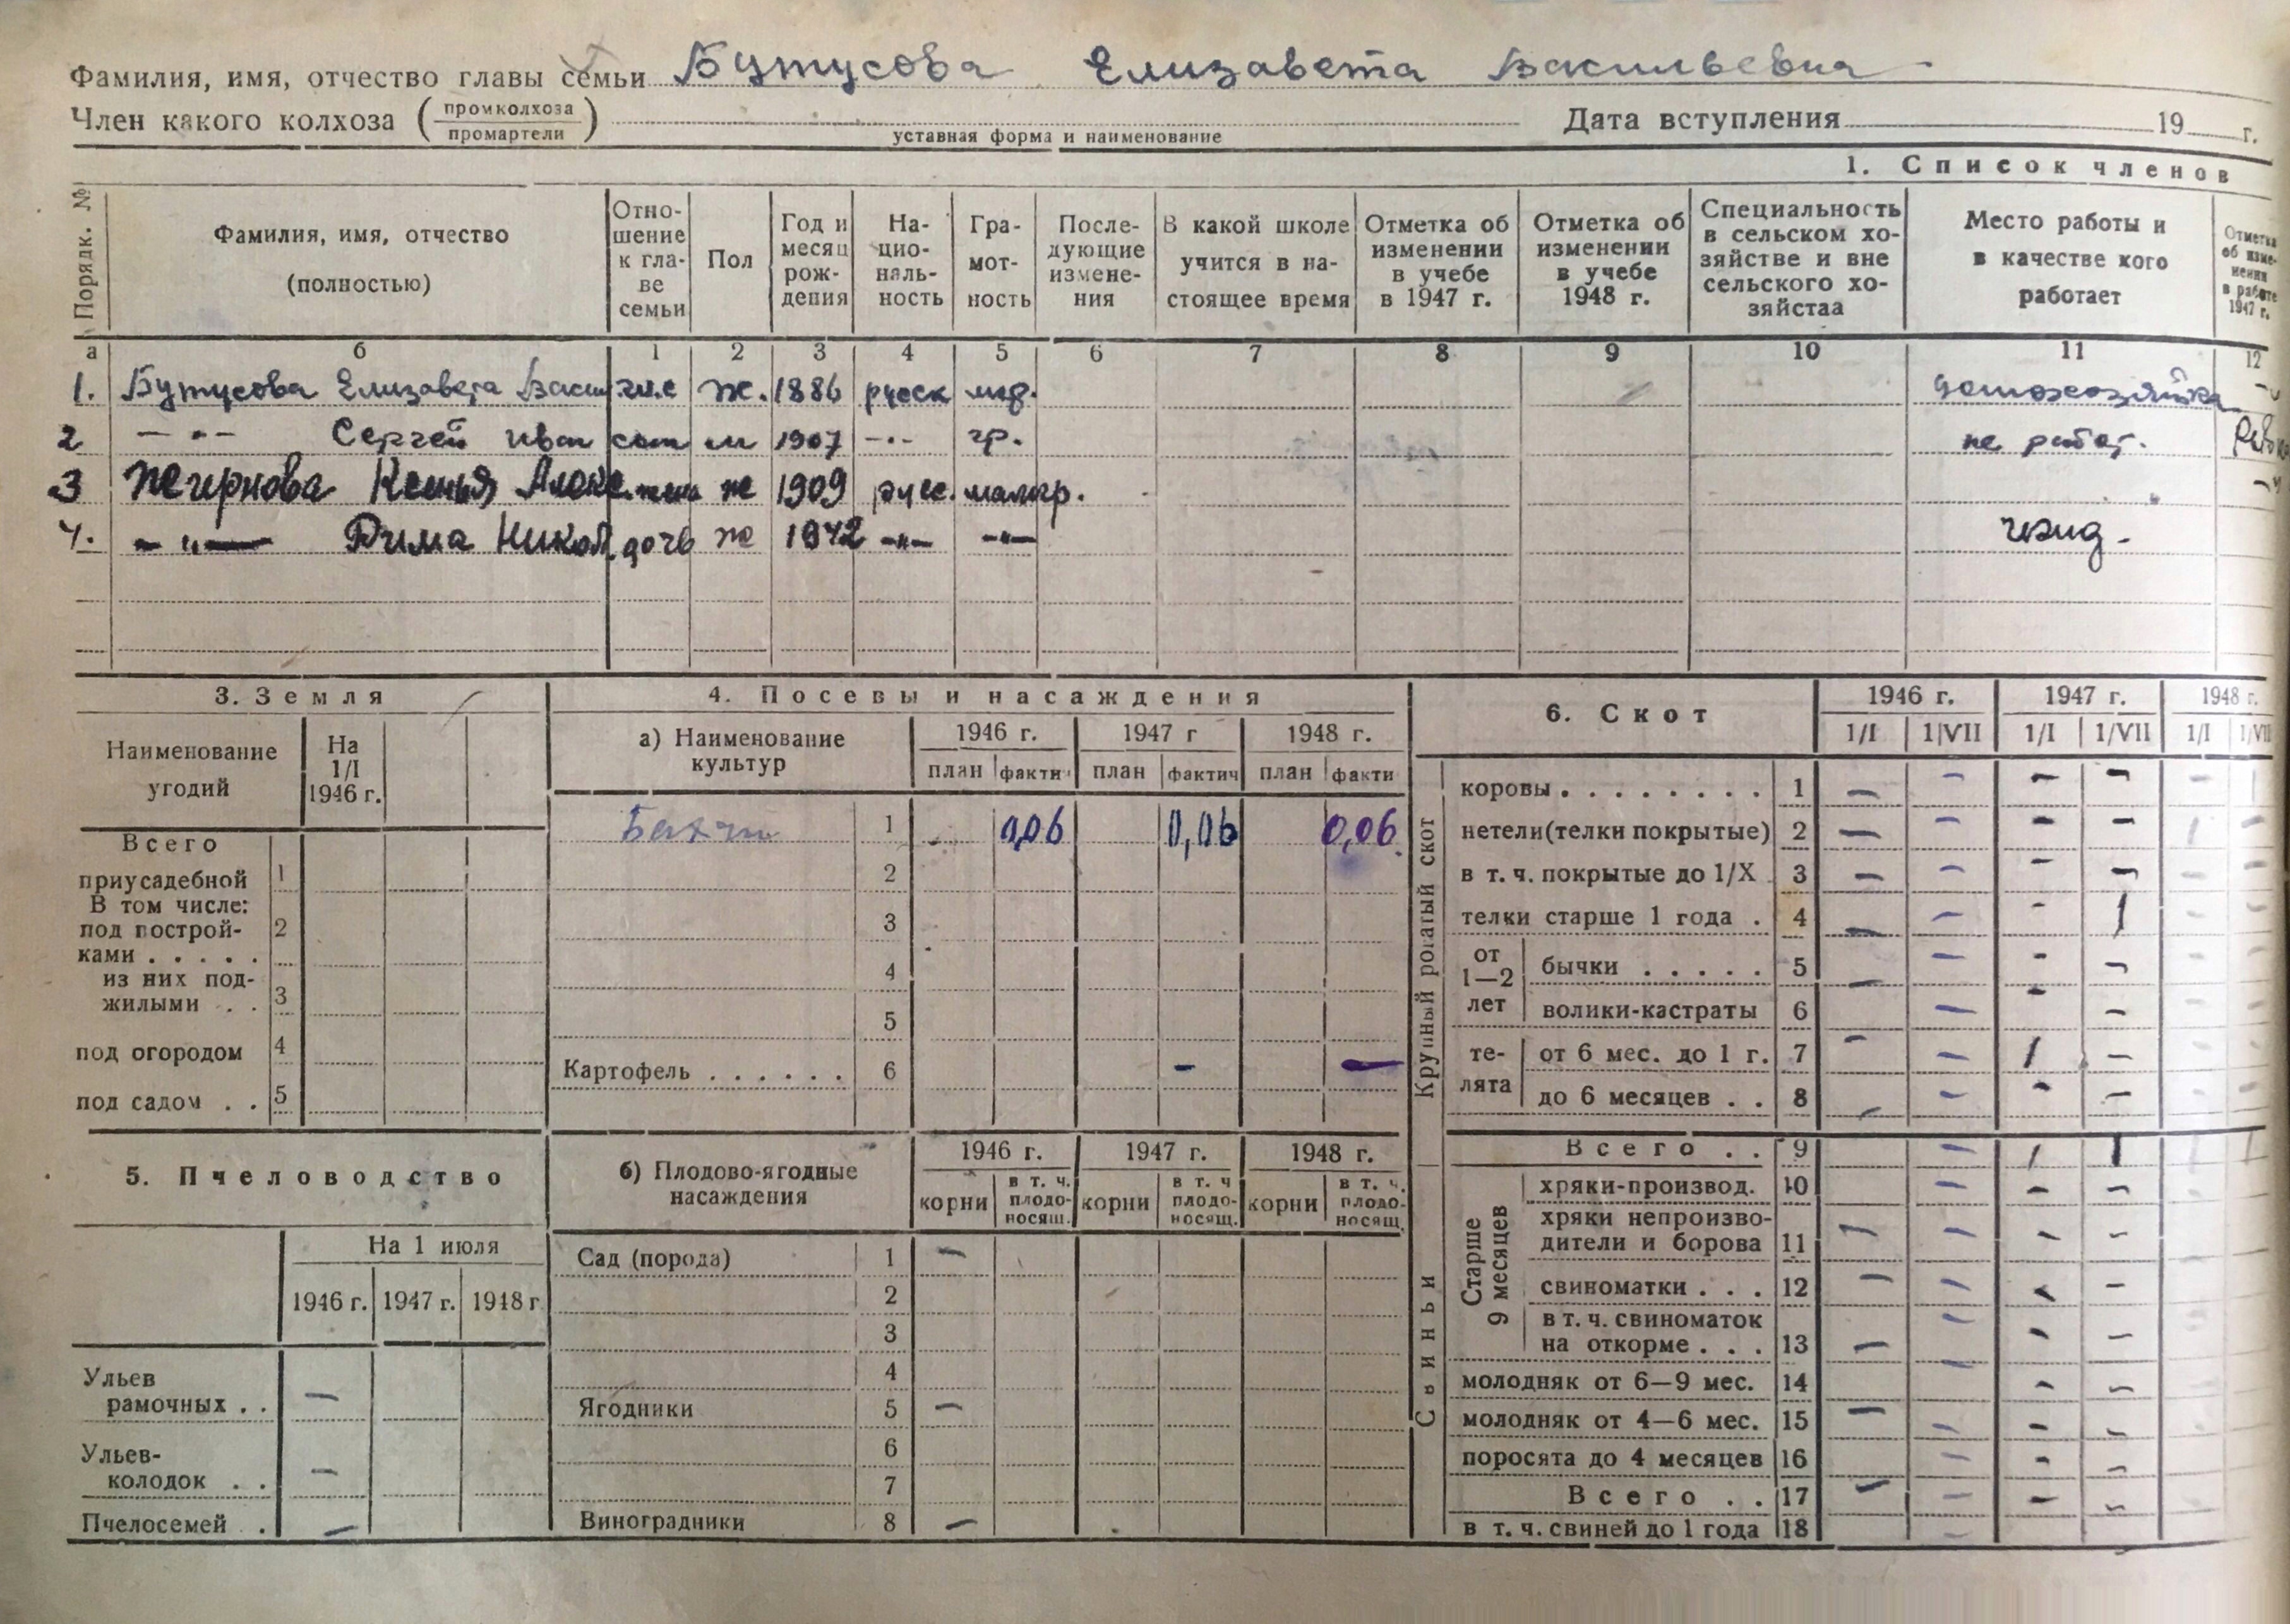 Фамилия, имя, отчество главы семьи Бутусова Елизавета Васильевна
Член какого колхоза (промколхоза / промартели) Дата вступления 19 г.
уставная форма и наименование
1. Список членов
Порядк. №
Фамилия, имя, отчество (полностью)
Отно-шение к гла-ве семьи
Пол
Год и месяц рож-дения
На-цио-наль-ность
Гра-мот-ность
После-дующие измене-ния
В какой школе учится в на-стоящее время
Отметка об изменении в учебе в 1947 г.
Отметка об изменении в учебе 1948 г.
Специальность в сельском хо-зяйстве и вне сельского хо-зяйстаа
Место работы и в качестве кого работает
Отметка об изме-нении в работе 1947 г.
а б 1 2 3 4 5 6 7 8 9 10 11 12
1. Бутусова Елизавета Васи гл.с ж. 1886 русск мгр. домохозяйка
2 —„— Сергей Иван сын м 1907 —„— гр. не работ.
3 Жернова Ксенья Алекс. жена ж 1909 русс. малогр.
4. —„— Рима Никол. дочь ж 1942 —„— —„— ижид.
3. Земля
Наименование угодий
На 1/I 1946 г.
Всего приусадебной 1
В том числе: под построй-ками 2
из них под-жилыми 3
под огородом 4
под садом 5
4. Посевы и насаждения
а) Наименование культур
1946 г. 1947 г 1948 г.
план факти план фактич план факти
Бахчи 1 0,06 0,06 0,06
2
3
4
5
Картофель 6 — —
5. Пчеловодство
На 1 июля
1946 г. 1947 г. 1948 г
Ульев рамочных —
Ульев-колодок —
Пчелосемей —
б) Плодово-ягодные насаждения
1946 г. 1947 г. 1948 г.
корни в т. ч. плодо-носящ. корни в т. ч плодо-носящ. корни в т. ч. плодо-носящ.
Сад (порода) 1 —
2
3
4
Ягодники 5 —
6
7
Виноградники 8 —
6. Скот
1946 г. 1947 г. 1948 г.
1/I 1/VII 1/I 1/VII 1/I 1/VII
Крупный рогатый скот
коровы 1
нетели(телки покрытые) 2
в т. ч. покрытые до 1/X 3
телки старше 1 года 4
от 1—2 лет
бычки 5
волики-кастраты 6
те-лята
от 6 мес. до 1 г. 7
до 6 месяцев 8
Всего 9
Свиньи
Старше 9 месяцев
хряки-производ. 10
хряки непроизво-дители и борова 11
свиноматки 12
в т. ч. свиноматок на откорме 13
молодняк от 6—9 мес. 14
молодняк от 4—6 мес. 15
поросята до 4 месяцев 16
Всего 17
в т. ч. свиней до 1 года 18